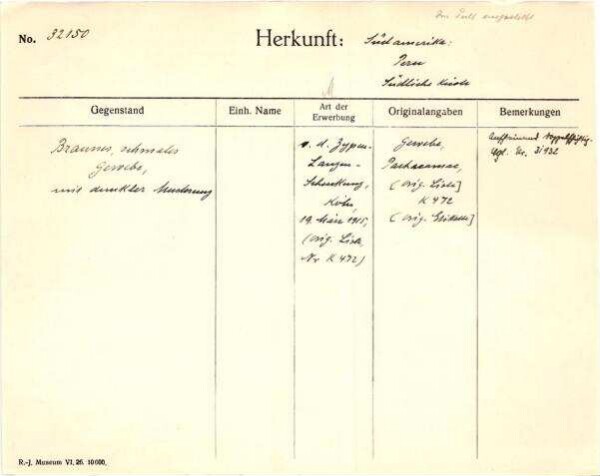 Im Pult ausgestellt
No. 32150
Herkunft: Südamerika:
Peru
Südliche Küste
Gegenstand
Einh. Name
Art der
Erwerbung
Originalangaben
Bemerkungen
Braunes, schmales
Gewebe,
mit dunkler Musterung
v. d. Zypen-
Langen-
Schenkung,
Köln,
19. März 1915,
(orig. Liste
Nr K 472)
Gewebe,
Pachacamac,
(orig. Liste)
K 472
(orig. Etikette)
Vgl. Nr.
R.-J. Museum VI. 26. 10000.